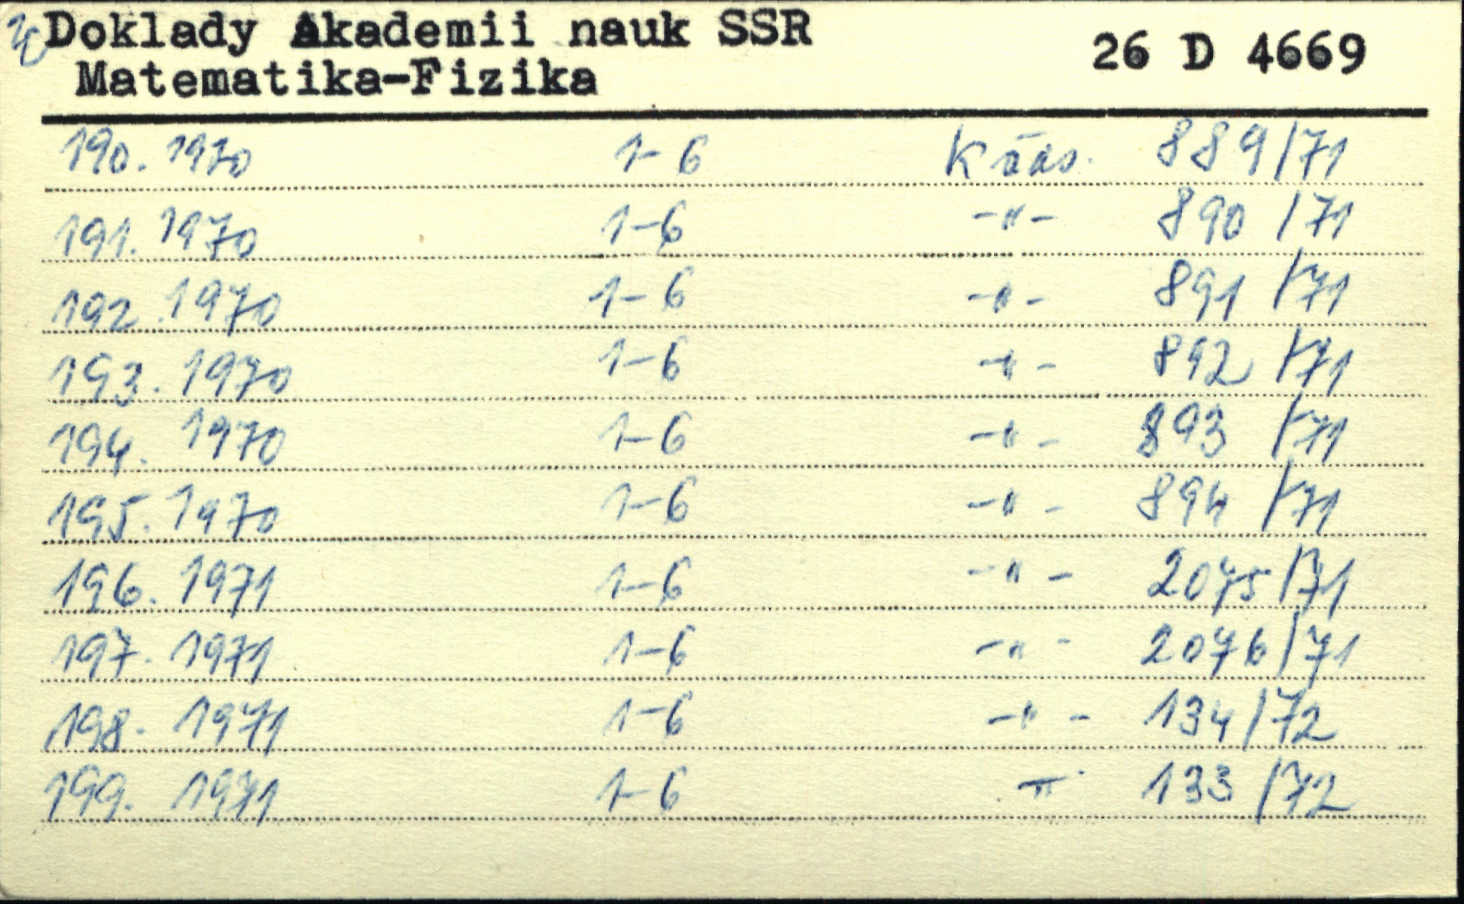 Doklady Akademii nauk SSR
26 D 4669
Matematika-Fizika
190. 1970 1-6 889/71
191. 1970 1-6 -"- 890/71
192. 1970 1-6 -"- 891/71
193. 1970 1-6 -"- 892/71
194. 1970 1-6 -"- 893/71
195. 1970 1-6 -"- 894/71
196. 1971 1-6 -"- 2075/71
197. 1971 1-6 -"- 2076/71
198. 1971 1-6 -"- 134/72
199. 1971 1-6 133/72